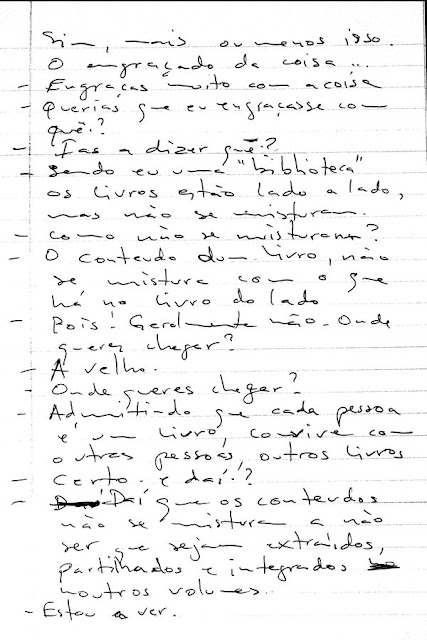 Sim, mais ou menos isso.
O engraçado da coisa...
- Engraças muito com a coisa
- Querias que eu engraçasse com
quê?
- Ias a dizer quê?
- Sendo eu uma "biblioteca"
os livros estão lado a lado,
mas não se misturam.
- Como não se misturam?
- O conteudo dum livro, não
se mistura com o que
há no livro do lado
- Pois! Geralmente não. Onde
queres chegar?
- A velho.
- Onde queres chegar?
- Admitindo que cada pessoa
é um livro, convive com
outras pessoas, outros livros
- Certo. E daí?
- Daí que os conteudos
não se mistura a não
ser que sejam extraídos,
partilhados e integrados
noutros volumes.
- Estou a ver.